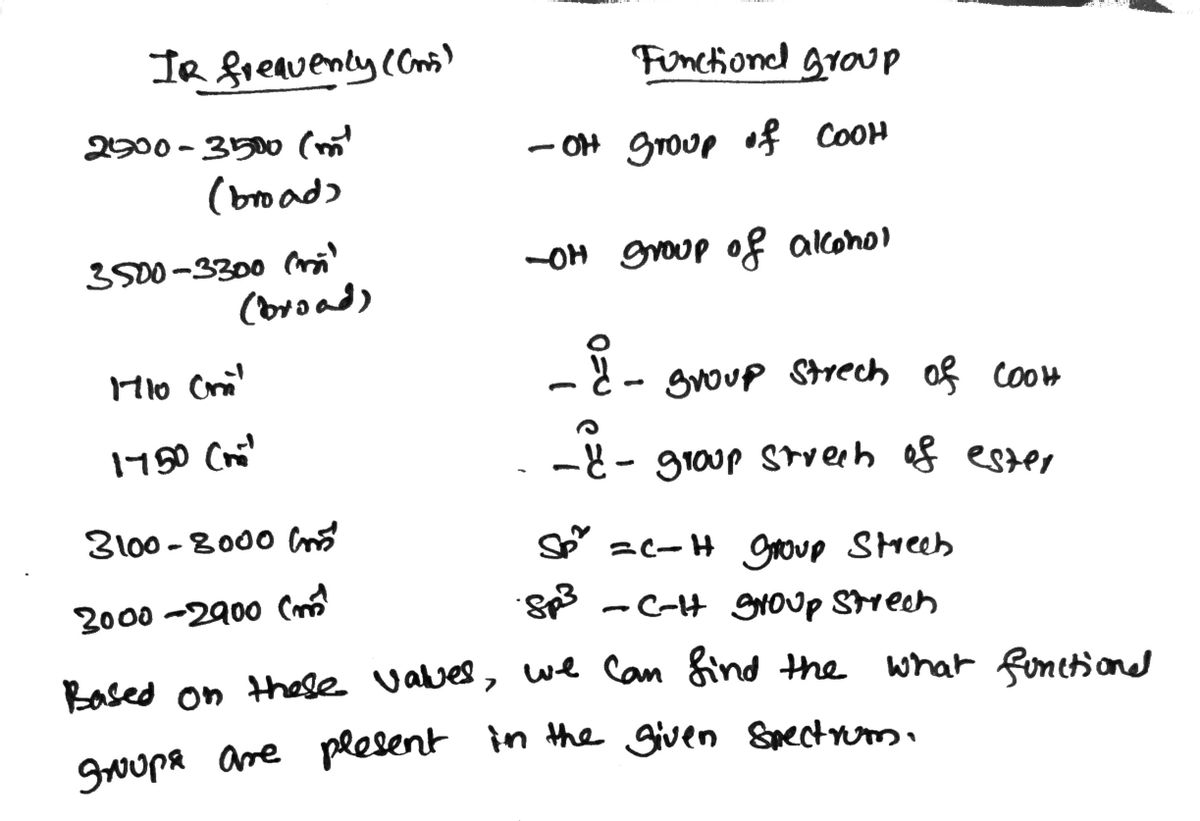 IR frequenly (Cm⁻¹) Functional group
2500-3500 Cm⁻¹ -OH group of COOH
(broad)
3500-3300 Cm⁻¹ -OH group of alcohol
(broad)
O
||
1710 Cm⁻¹ -C- group Strech of COOH
O
||
1750 Cm⁻¹ -C- group Strech of ester
3100-3000 Cm⁻¹ Sp² =C-H group Strech
3000-2900 Cm⁻¹ Sp³ -C-H group Strech
Based on these values, we Can find the what functional
groups are present in the given Spectrum.